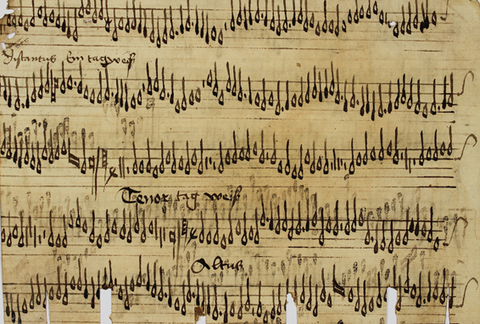 Distantus Ein tagweiß
Tenor tag weiß
Altus